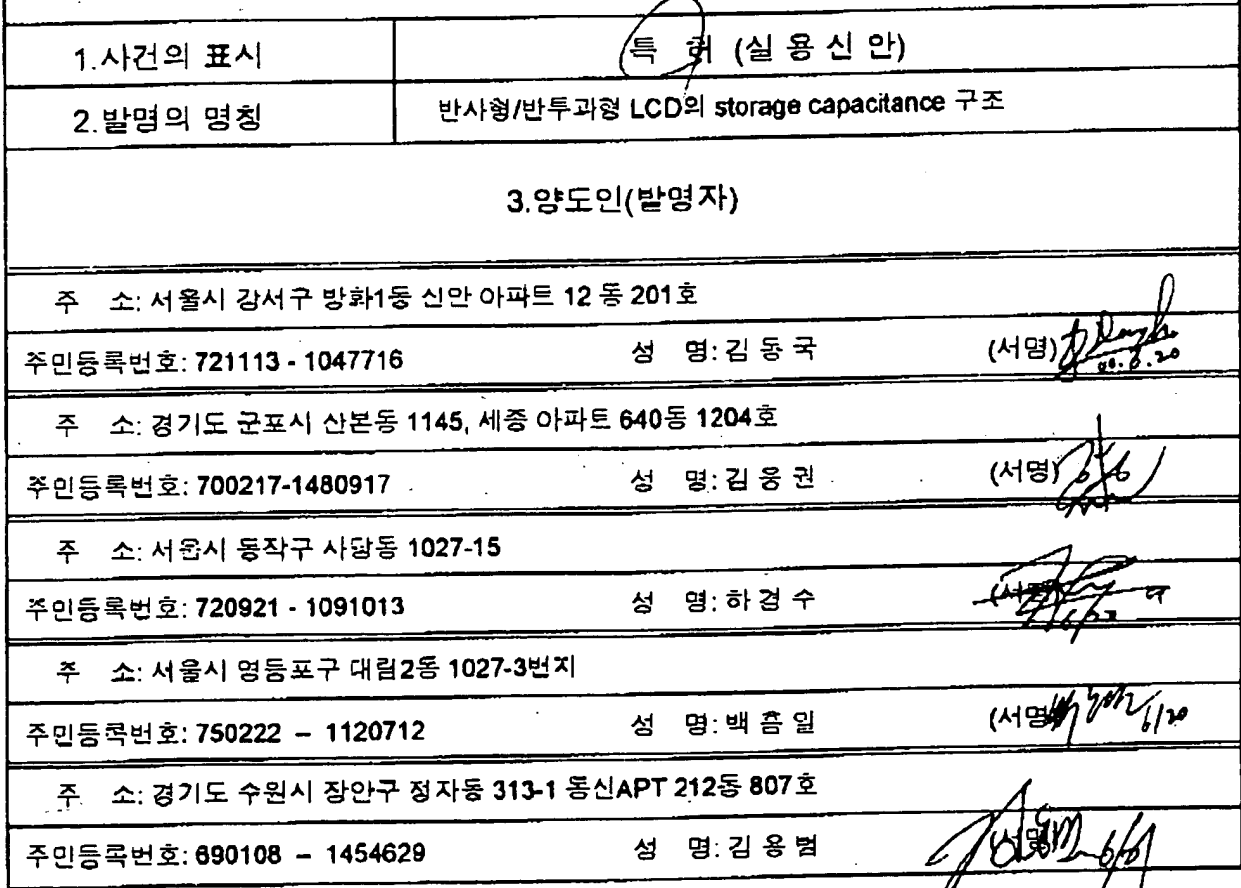 1.사건의 표시 특 허 (실 용 신 안)
2.발명의 명칭 반사형/반투과형 LCD의 storage capacitance 구조
3.양도인(발명자)
주 소: 서울시 강서구 방화1동 신안 아파트 12 동 201호
주민등록번호: 721113 - 1047716 성 명: 김 동 국 (서명) 00.6.20
주 소: 경기도 군포시 산본동 1145, 세종 아파트 640동 1204호
주민등록번호: 700217-1480917 성 명: 김 웅 권 (서명)
주 소: 서울시 동작구 사당동 1027-15
주민등록번호: 720921 - 1091013 성 명: 하 경 수 (서명)
주 소: 서울시 영등포구 대림2동 1027-3번지
주민등록번호: 750222 – 1120712 성 명: 백 흠 일 (서명) 6/20
주 소: 경기도 수원시 장안구 정자동 313-1 동신APT 212동 807호
주민등록번호: 690108 – 1454629 성 명: 김 용 범 (서명)